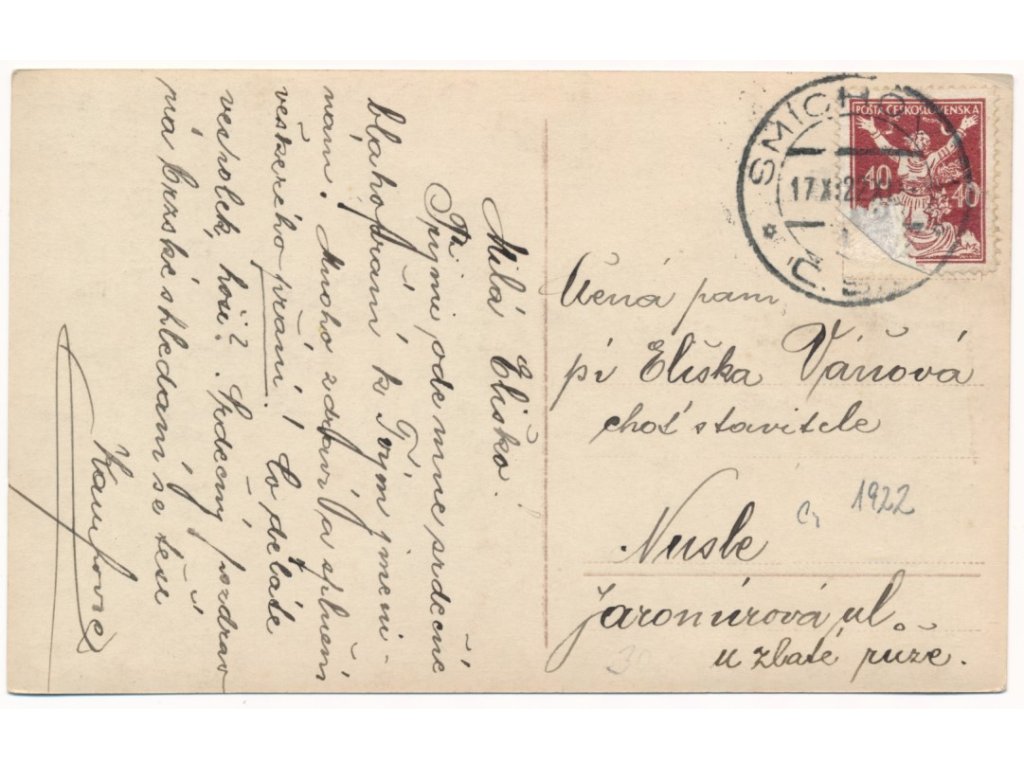 Milá Eliško!
Přijmi ode mne srdečné
blahopřání k Tvým jmeni-
nám. Mnoho zdraví a splnění
veškerého přání! Co děláte
vespolek, hoši? Srdečný pozdrav
na brzské shledání se těší
SMÍCHOV
17.X.22
POŠTA ČESKOSLOVENSKÁ
40 40
Ctěná paní
pí Eliška Váňová
choť stavitele
1922
Nusle
Jaromírová ul.
u zlaté růže.
3